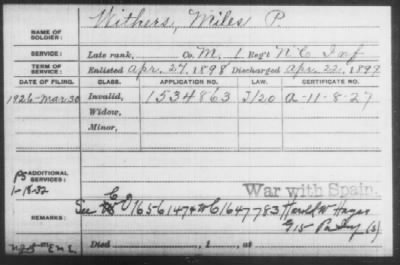 Withers, Miles P.
NAME OF SOLDIER:
SERVICE: Late rank, Co. M, 1 Reg't N.C. Inf
TERM OF SERVICE: Enlisted Apr. 27, 1898 Discharged Apr. 22, 1899
DATE OF FILING. CLASS. APPLICATION NO. LAW. CERTIFICATE NO.
1926-Mar 30 Invalid, 1534863 J/20 A-11-8-27
Widow,
Minor,
ADDITIONAL SERVICES:
PS
1-18-32
War with Spain.
REMARKS: See C O 1656147 & W C 1647783 Harold W. Hayes
G15
Died , 1 , at